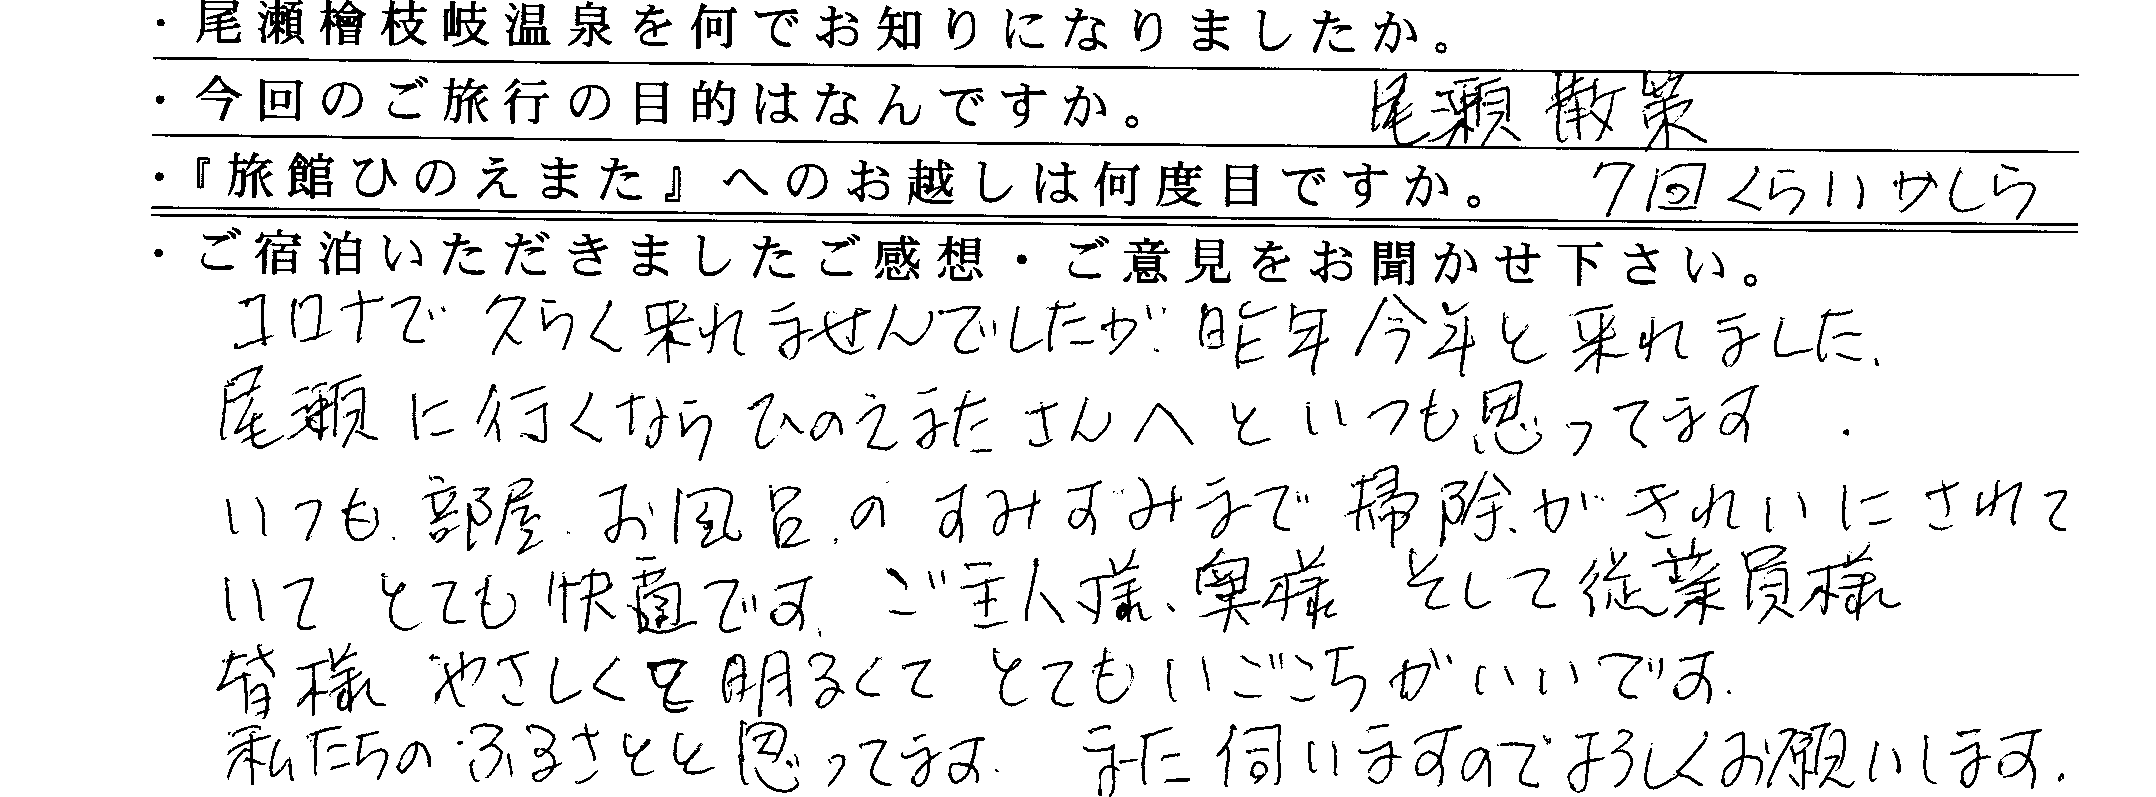 ・尾瀬檜枝岐温泉を何でお知りになりましたか。
・今回のご旅行の目的はなんですか。 尾瀬散策
・『旅館ひのえまた』へのお越しは何度目ですか。 7回くらいかしら
・ご宿泊いただきましたご感想・ご意見をお聞かせ下さい。
コロナで久らく来れませんでしたが、昨年今年と来れました。
尾瀬に行くなら ひのえまたさんへ といつも思ってます。
いつも、部屋、お風呂、の すみずみまで 掃除がきれいにされて
いて とても快適です。ご主人様、奥様 そして従業員様
皆様 やさしくて明るくて とてもいごこちがいいです。
私たちの ふるさとと思ってます。 また伺いますのでよろしくお願いします。